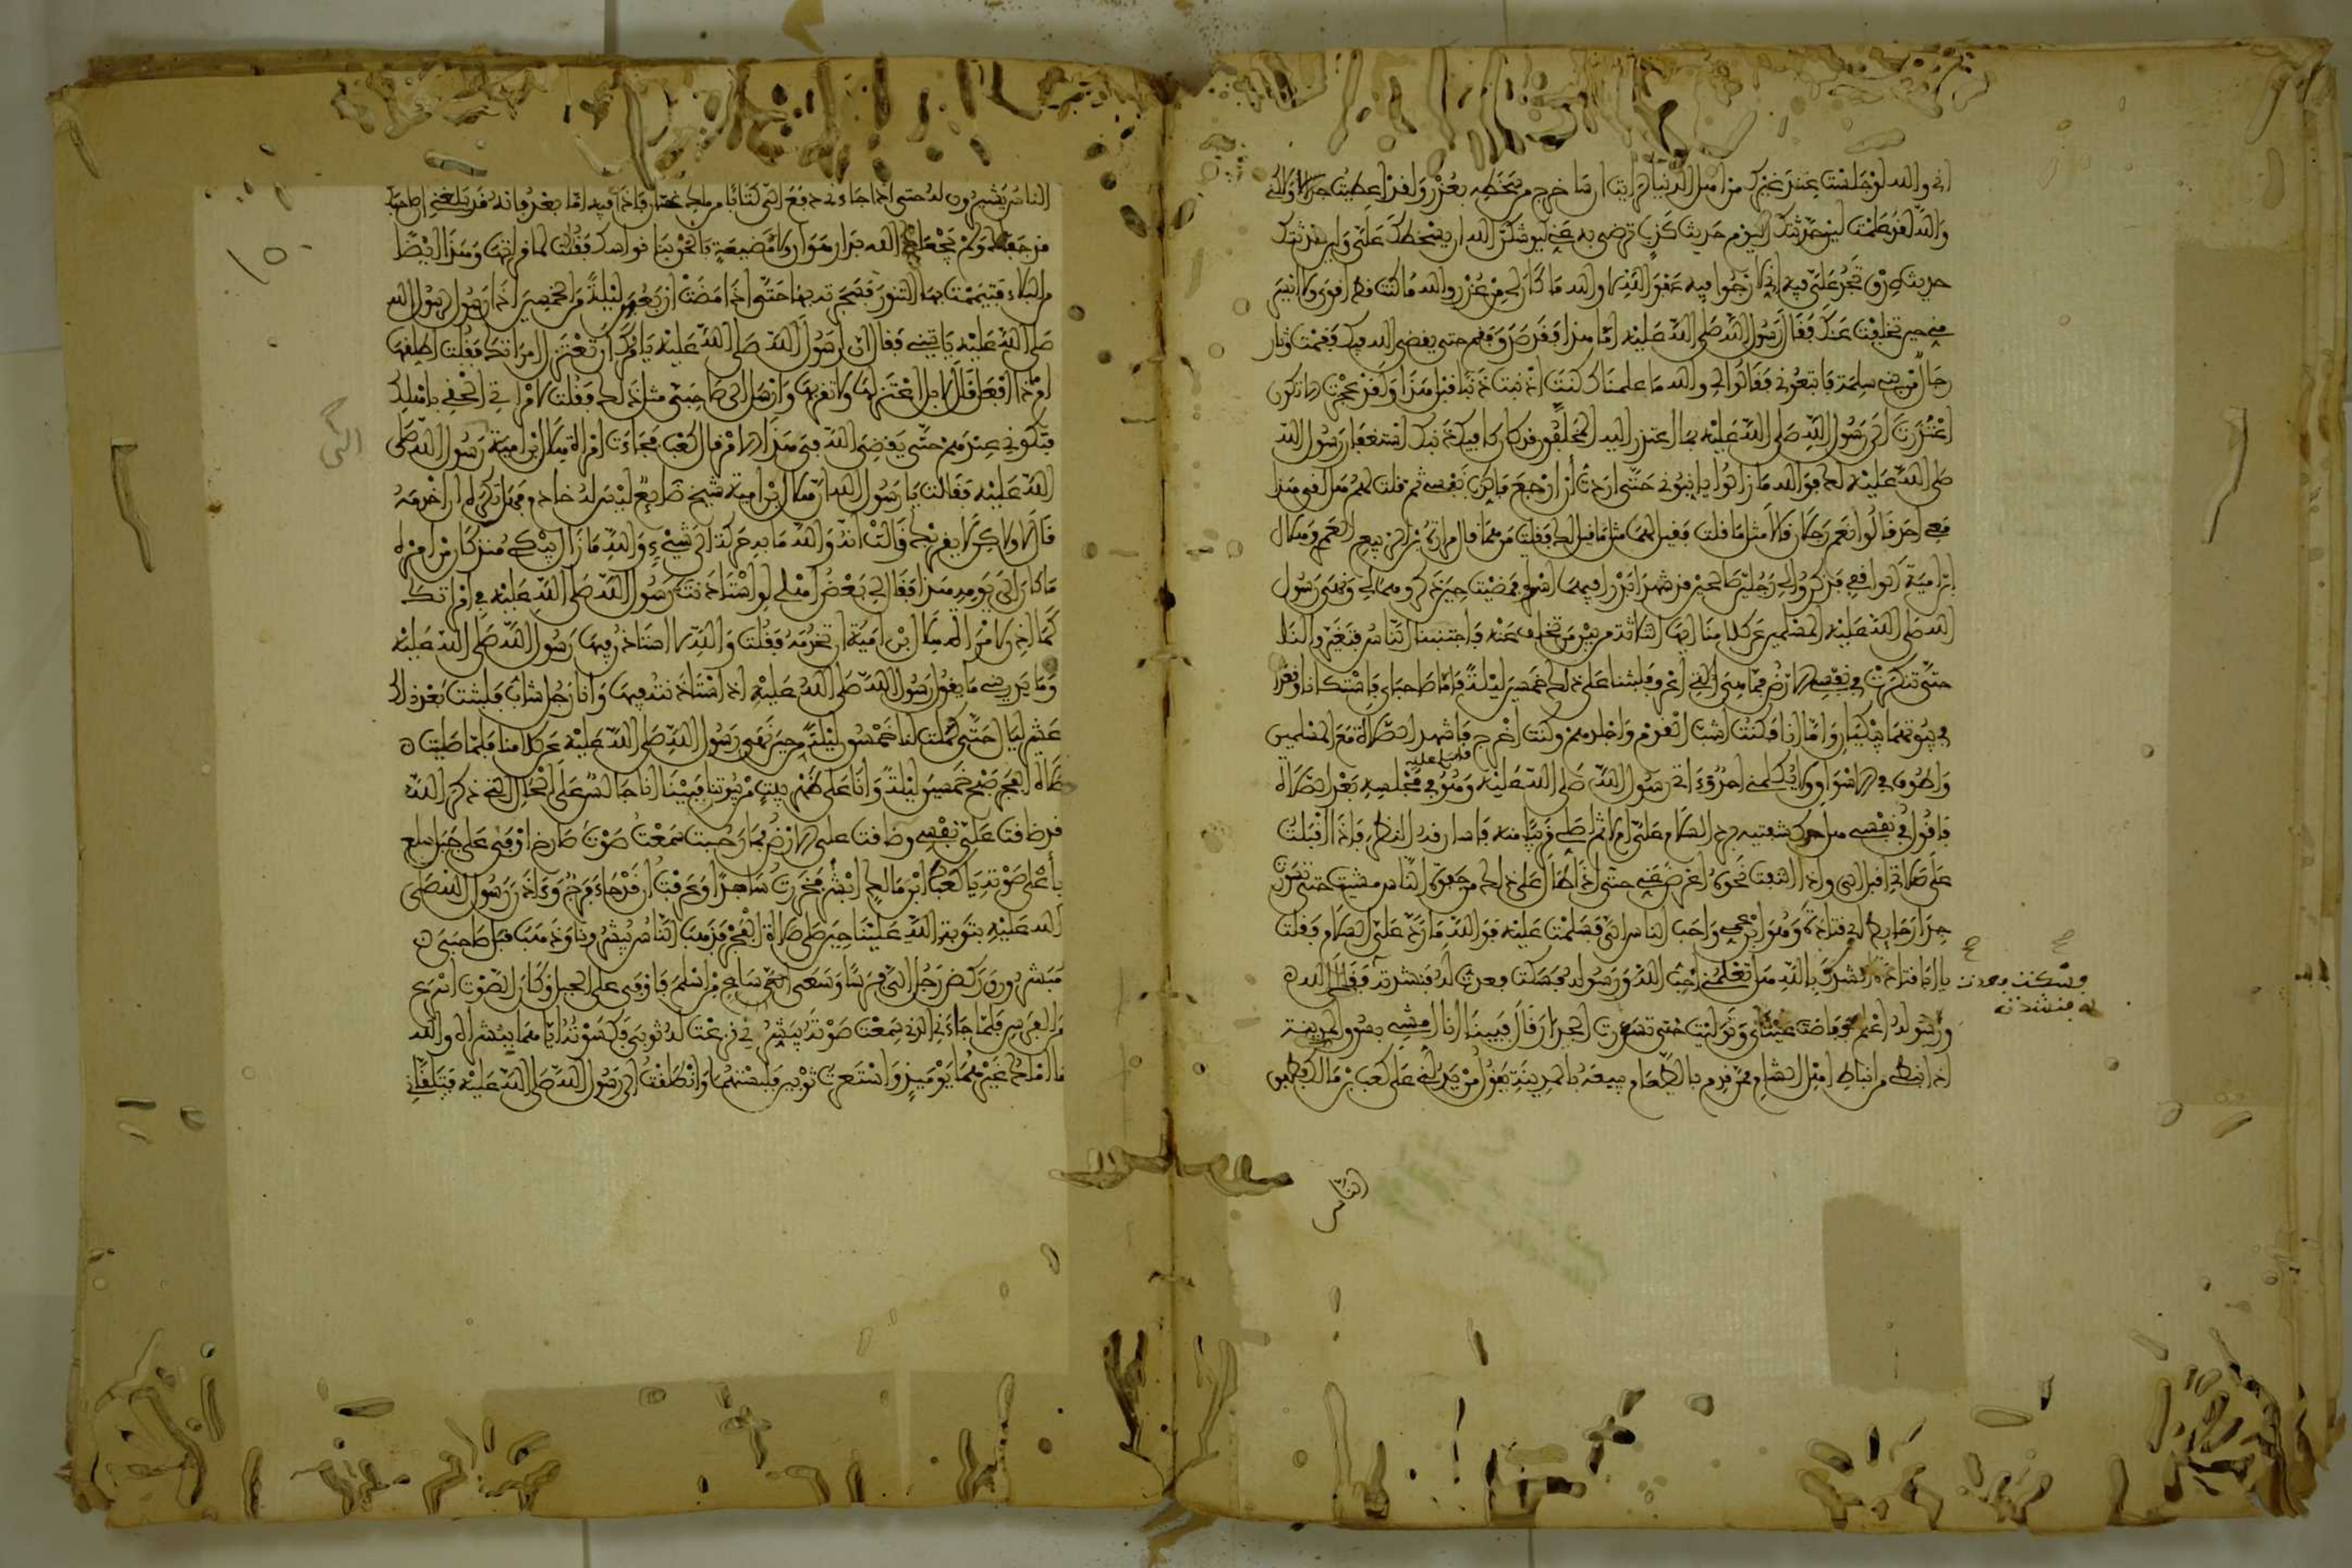 اني والله لو جلست عند غيرك من اهل الدنيا لرايت ان ساخرج من سخطه بعذر ولقد اعطيت جدلا ولكني
والله لقد علمت لين حدثتك اليوم حديث كذب ترضى به عني ليوشكن الله ان يسخطك علي ولين حدثتك
حديث صدق تجد علي فيه اني لارجوا فيه عفو الله لا والله ما كان لي من عذر والله ما كنت قط اقوى ولا ايسر
مني حين تخلفت عنك فقال رسول الله صلى الله عليه اما هذا فقد صدق فقم حتى يقضي الله فيك فقمت وثار
رجال من بني سلمة فاتبعوني فقالوا لي والله ما علمناك كنت اذنبت ذنبا قبل هذا ولقد عجزت الا تكون
اعتذرت الى رسول الله صلى الله عليه بما اعتذر اليه المخلفون قد كان كافيك ذنبك استغفار رسول الله
صلى الله عليه لك فوالله ما زالوا يانبوني حتى اردت ان ارجع فاكذب نفسي ثم قلت لهم هل لقي هذا
معي احد قالوا نعم رجلان قالا مثل ما قلت فقيل لهما مثل ما قيل لك فقلت من هما قالوا مرارة بن الربيع العمري وهلال
بن امية الواقفي فذكروا لي رجلين صالحين قد شهدا بدرا فيهما اسوة فمضيت حين ذكروهما لي ونهى رسول
الله صلى الله عليه المسلمين عن كلامنا ايها الثلاثة من بين من تخلف عنه فاجتنبنا الناس وتغيروا لنا
حتى تنكرت في نفسي الارض فما هي التي اعرف فلبثنا على ذلك خمسين ليلة فاما صاحباي فاستكانا وقعدا
في بيوتهما يبكيان واما انا فكنت اشب القوم واجلدهم وكنت اخرج فاشهد الصلاة مع المسلمين
واطوف في الاسواق ولا يكلمني احد وءاتي رسول الله صلى الله عليه وهو في مجلسه بعد الصلاة
فاسلم عليه
فاقول في نفسي هل حرك شفتيه برد السلام علي ام لا ثم اصلي قريبا منه فاسارقه النظر فاذا اقبلت
على صلاتي اقبل الي واذا التفت نحوه اعرض عني حتى اذا طال علي ذلك من جفوة الناس مشيت حتى تسورت
جدار حايط ابي قتادة وهو ابن عمي واحب الناس الي فسلمت عليه فوالله ما رد علي السلام فقلت
يا ابا قتادة انشدك بالله هل تعلمني احب الله ورسوله فسكت فعدت له فنشدته فقال الله
فسكت فعدت
له فنشدته
ورسوله اعلم ففاضت عيناي وتوليت حتى تسورت الجدار قال فبينا انا امشي بسوق المدينة
اذا نبطي من انباط اهل الشام ممن قدم بالطعام يبيعه بالمدينة يقول من يدلني على كعب بن مالك فطفق
الناس
الناس يشيرون له حتى اذا جاءني دفع الي كتابا من ملك غسان فاذا فيه اما بعد فانه قد بلغني ان صاحبك
قد جفاك ولم يجعلك الله بدار هوان ولا مضيعة فالحق بنا نواسك فقلت لما قراتها وهذا ايضا
من البلاء فتيممت بها التنور فسجرته بها حتى اذا مضت اربعون ليلة من الخمسين اذا رسول رسول الله
صلى الله عليه ياتيني فقال ان رسول الله صلى الله عليه يامرك ان تعتزل امراتك فقلت اطلقها
ام ماذا افعل قال لا بل اعتزلها ولا تقربها وارسل الى صاحبي مثل ذلك فقلت لامراتي الحقي باهلك
فتكوني عندهم حتى يقضي الله في هذا الامر قال كعب فجاءت امراة هلال بن امية رسول الله صلى
الله عليه فقالت يا رسول الله ان هلال بن امية شيخ ضايع ليس له خادم فهل تكره ان اخدمه
قال لا ولكن لا يقربك قالت انه والله ما به حركة الى شيء والله ما زال يبكي منذ كان من امره
ما كان الى يومه هذا فقال لي بعض اهلي لو استاذنت رسول الله صلى الله عليه في امراتك
كما اذن لامراة هلال ابن امية ان تخدمه فقلت والله لا استاذن فيها رسول الله صلى الله عليه
وما يدريني ما يقول رسول الله صلى الله عليه اذا استاذنته فيها وانا رجل شاب فلبثت بعد ذلك
عشر ليال حتى كملت لنا خمسون ليلة من حين نهى رسول الله صلى الله عليه عن كلامنا فلما صليت
صلاة الفجر صبح خمسين ليلة وانا على ظهر بيت من بيوتنا فبينا انا جالس على الحال التي ذكر الله
قد ضاقت علي نفسي وضاقت علي الارض بما رحبت سمعت صوت صارخ اوفى على جبل سلع
باعلى صوته يا كعب ابن مالك ابشر فخررت ساجدا وعرفت ان قد جاء فرج وءاذن رسول الله صلى
الله عليه بتوبة الله علينا حين صلى صلاة الفجر فذهب الناس يبشروننا وذهب قبل صاحبي
مبشرون وركض رجل الي فرسا وسعى الي ساع من اسلم فاوفى على الجبل وكان الصوت اسرع
من الفرس فلما جاءني الذي سمعت صوته يبشرني نزعت له ثوبي فكسوته اياهما ببشراه والله
ما املك غيرهما يوميذ واستعرت ثوبين فلبستهما وانطلقت الى رسول الله صلى الله عليه فيتلقاني